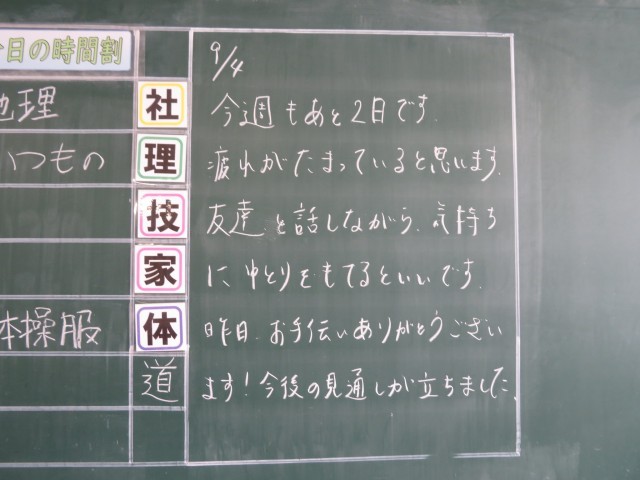 今日の時間割
地理
社
いつもの
理
技
家
体操服
体
道
9/4
今週もあと2日です.
疲れがたまっていると思います.
友達と話しながら、気持ち
にゆとりをもてるといいです.
昨日、お手伝いありがとうござい
ます!今後の見通しが立ちました.